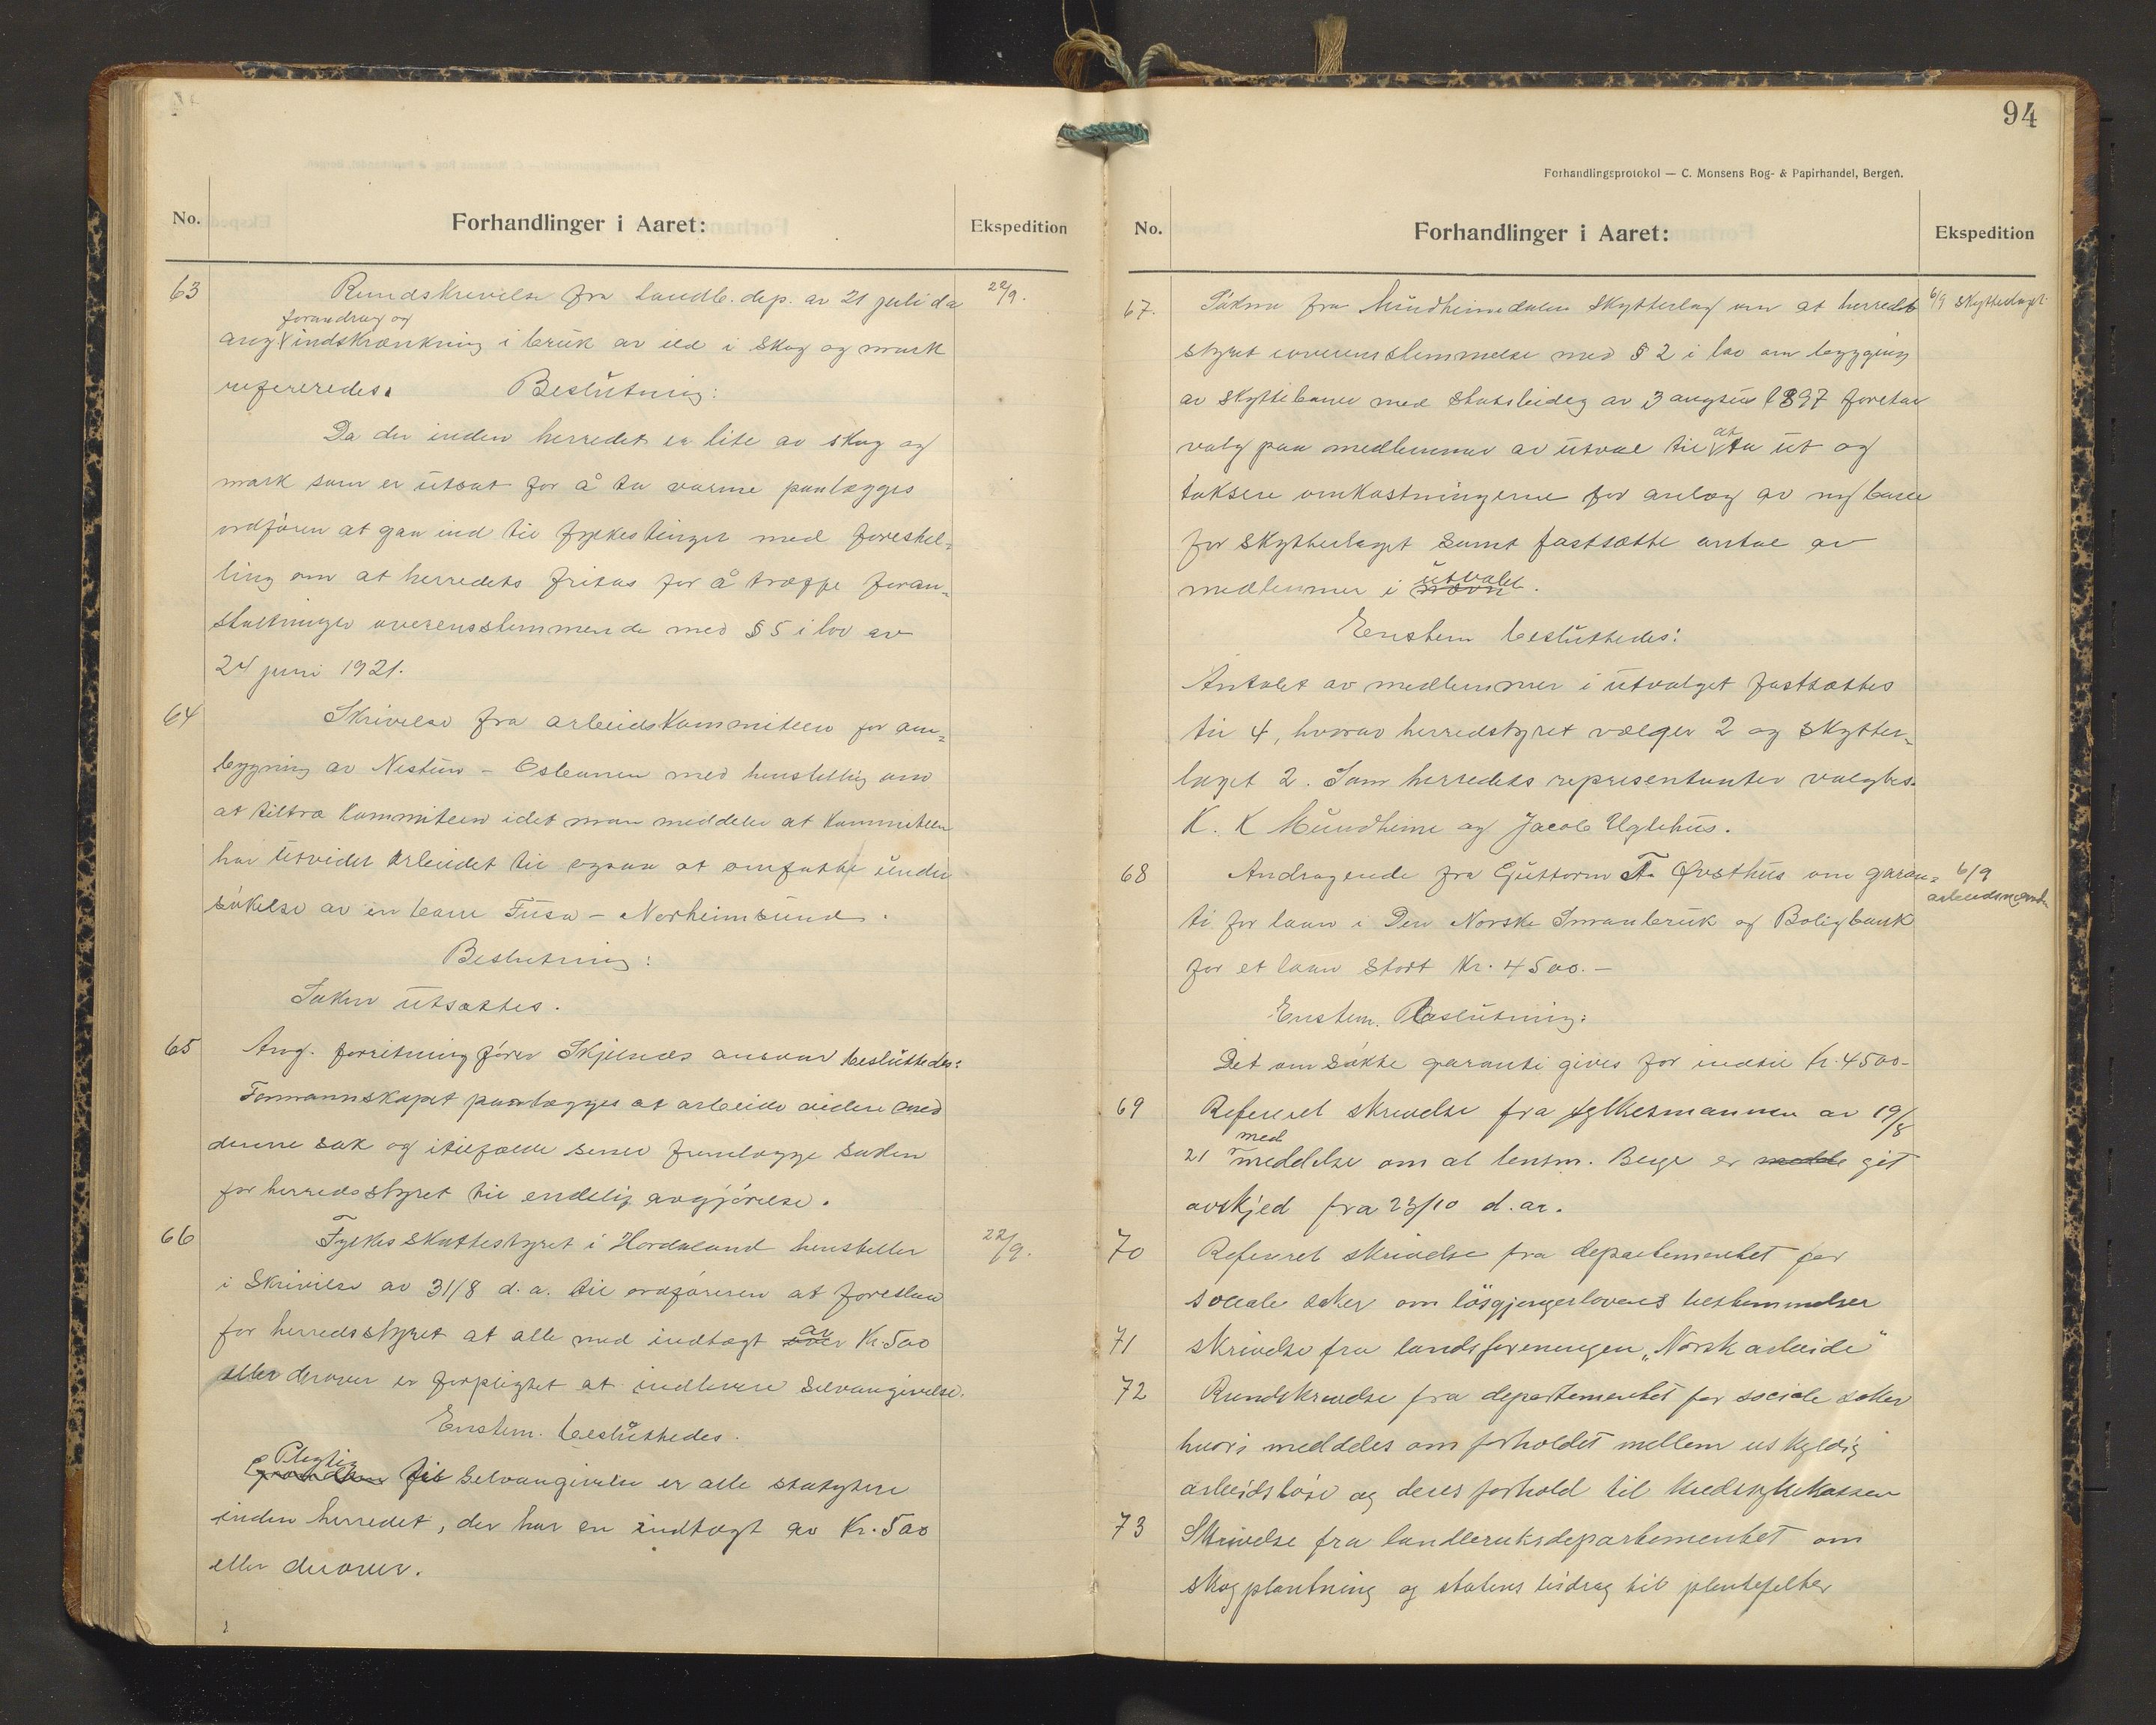 No.
Forhandlinger i Aaret:
Ekspedition
63
Rundskrivelse fra landb. dep. av 21 juli da
22/9.
forandring og
ang indskrænkning i bruk av ild i skog og mark
refereredes. Beslutning:
Da der inden herredet er lite av skog og
mark som er utsat for å ta varme paalægges
ordføren at gaa ind til fylkestinget med forestel=
ling om at herredets fritas for å træffe foran=
staltninger overensstemmende med § 5 i lov av
24 juni 1921.
64
Skrivelse fra arbeidskommiteen for an=
lygning av Nestun - Osbanen med henstilling om
at tiltræ kommiteen idet man meddeler at kommiteen
har utvidet arbeidet til ogsaa at omfatte under
søkelse av en bane Fusa - Norheimsund.
Beslutning:
Saken utsættes.
65
Ang. forretningsfører Skjelnæs ansvar besluttedes:
Formannskapet paalægges at arbeide videre med
denne sak og i tilfælde senere fremlægge saken
for herredsstyret til endelig avgjørelse.
66
Fylkesskattestyret i Hordaland henstiller
22/9.
i skrivelse av 31/8 d.a. til ordføreren at foreslaa
for herredsstyret at alle med indtægt over av Kr. 500
eller derover er forpligtet at indlevere selvangivelse.
Enstem. besluttedes.
Pligtig
til selvangivelse er alle skatytere
inden herredet, der har en indtægt av Kr. 500
eller derover.
94
Forhandlingsprotokol — C. Monsens Bog- & Papirhandel, Bergen.
No.
Forhandlinger i Aaret:
Ekspedition
67.
Søkna fra Mundheimsdalen Skytterlag om at herreds
6/9 Skytterlaget
styret i overensstemmelse med § 2 i lov om bygging
av skyttebaner med statsbidrag av 3 august 1897 foretar
valg paa medlemmer av utval til at ta ut og
taksere omkostningerne for anlæg av ny bane
for skytterlaget samt fastsætte antal av
medlemmer i nævn utvalet.
Enstem besluttedes:
Antalet av medlemmer i utvalget fastsættes
til 4, hvorav herredstyret vælger 2 og skytter=
laget 2. Som herredets representanter valgtes.
K. K Mundheim og Jacob Uglehus.
68
Andragende fra Guttorm T. Øvsthus om garan=
6/9
arbeidsmanden
ti for laan i Den Norske Smaabruk og Boligbank
for et laan stort Kr. 4500.-
Enstem. Beslutning:
Det om søkte garanti gives for indtil kr. 4500-
69
Referert skrivelse fra fylkesmannen av 19/8
med
21 meddelse om at lensm. Berge er medde git
avskjed fra 23/10 d. aa.
70
Referert skrivelse fra departementet for
sociale saker om løsgjengerlovens bestemmelser
71
skrivelse fra landsforeningen „Norsk arbeide"
72
Rundskrivelse fra departementet for sociale saker
hvori meddeles om forholdet mellem uskyldig
arbeidsløse og deres forhold til kredssykekassen
73
Skrivelse fra landbruksdepartementet om
skogplantning og statens bidrag til plantefelter